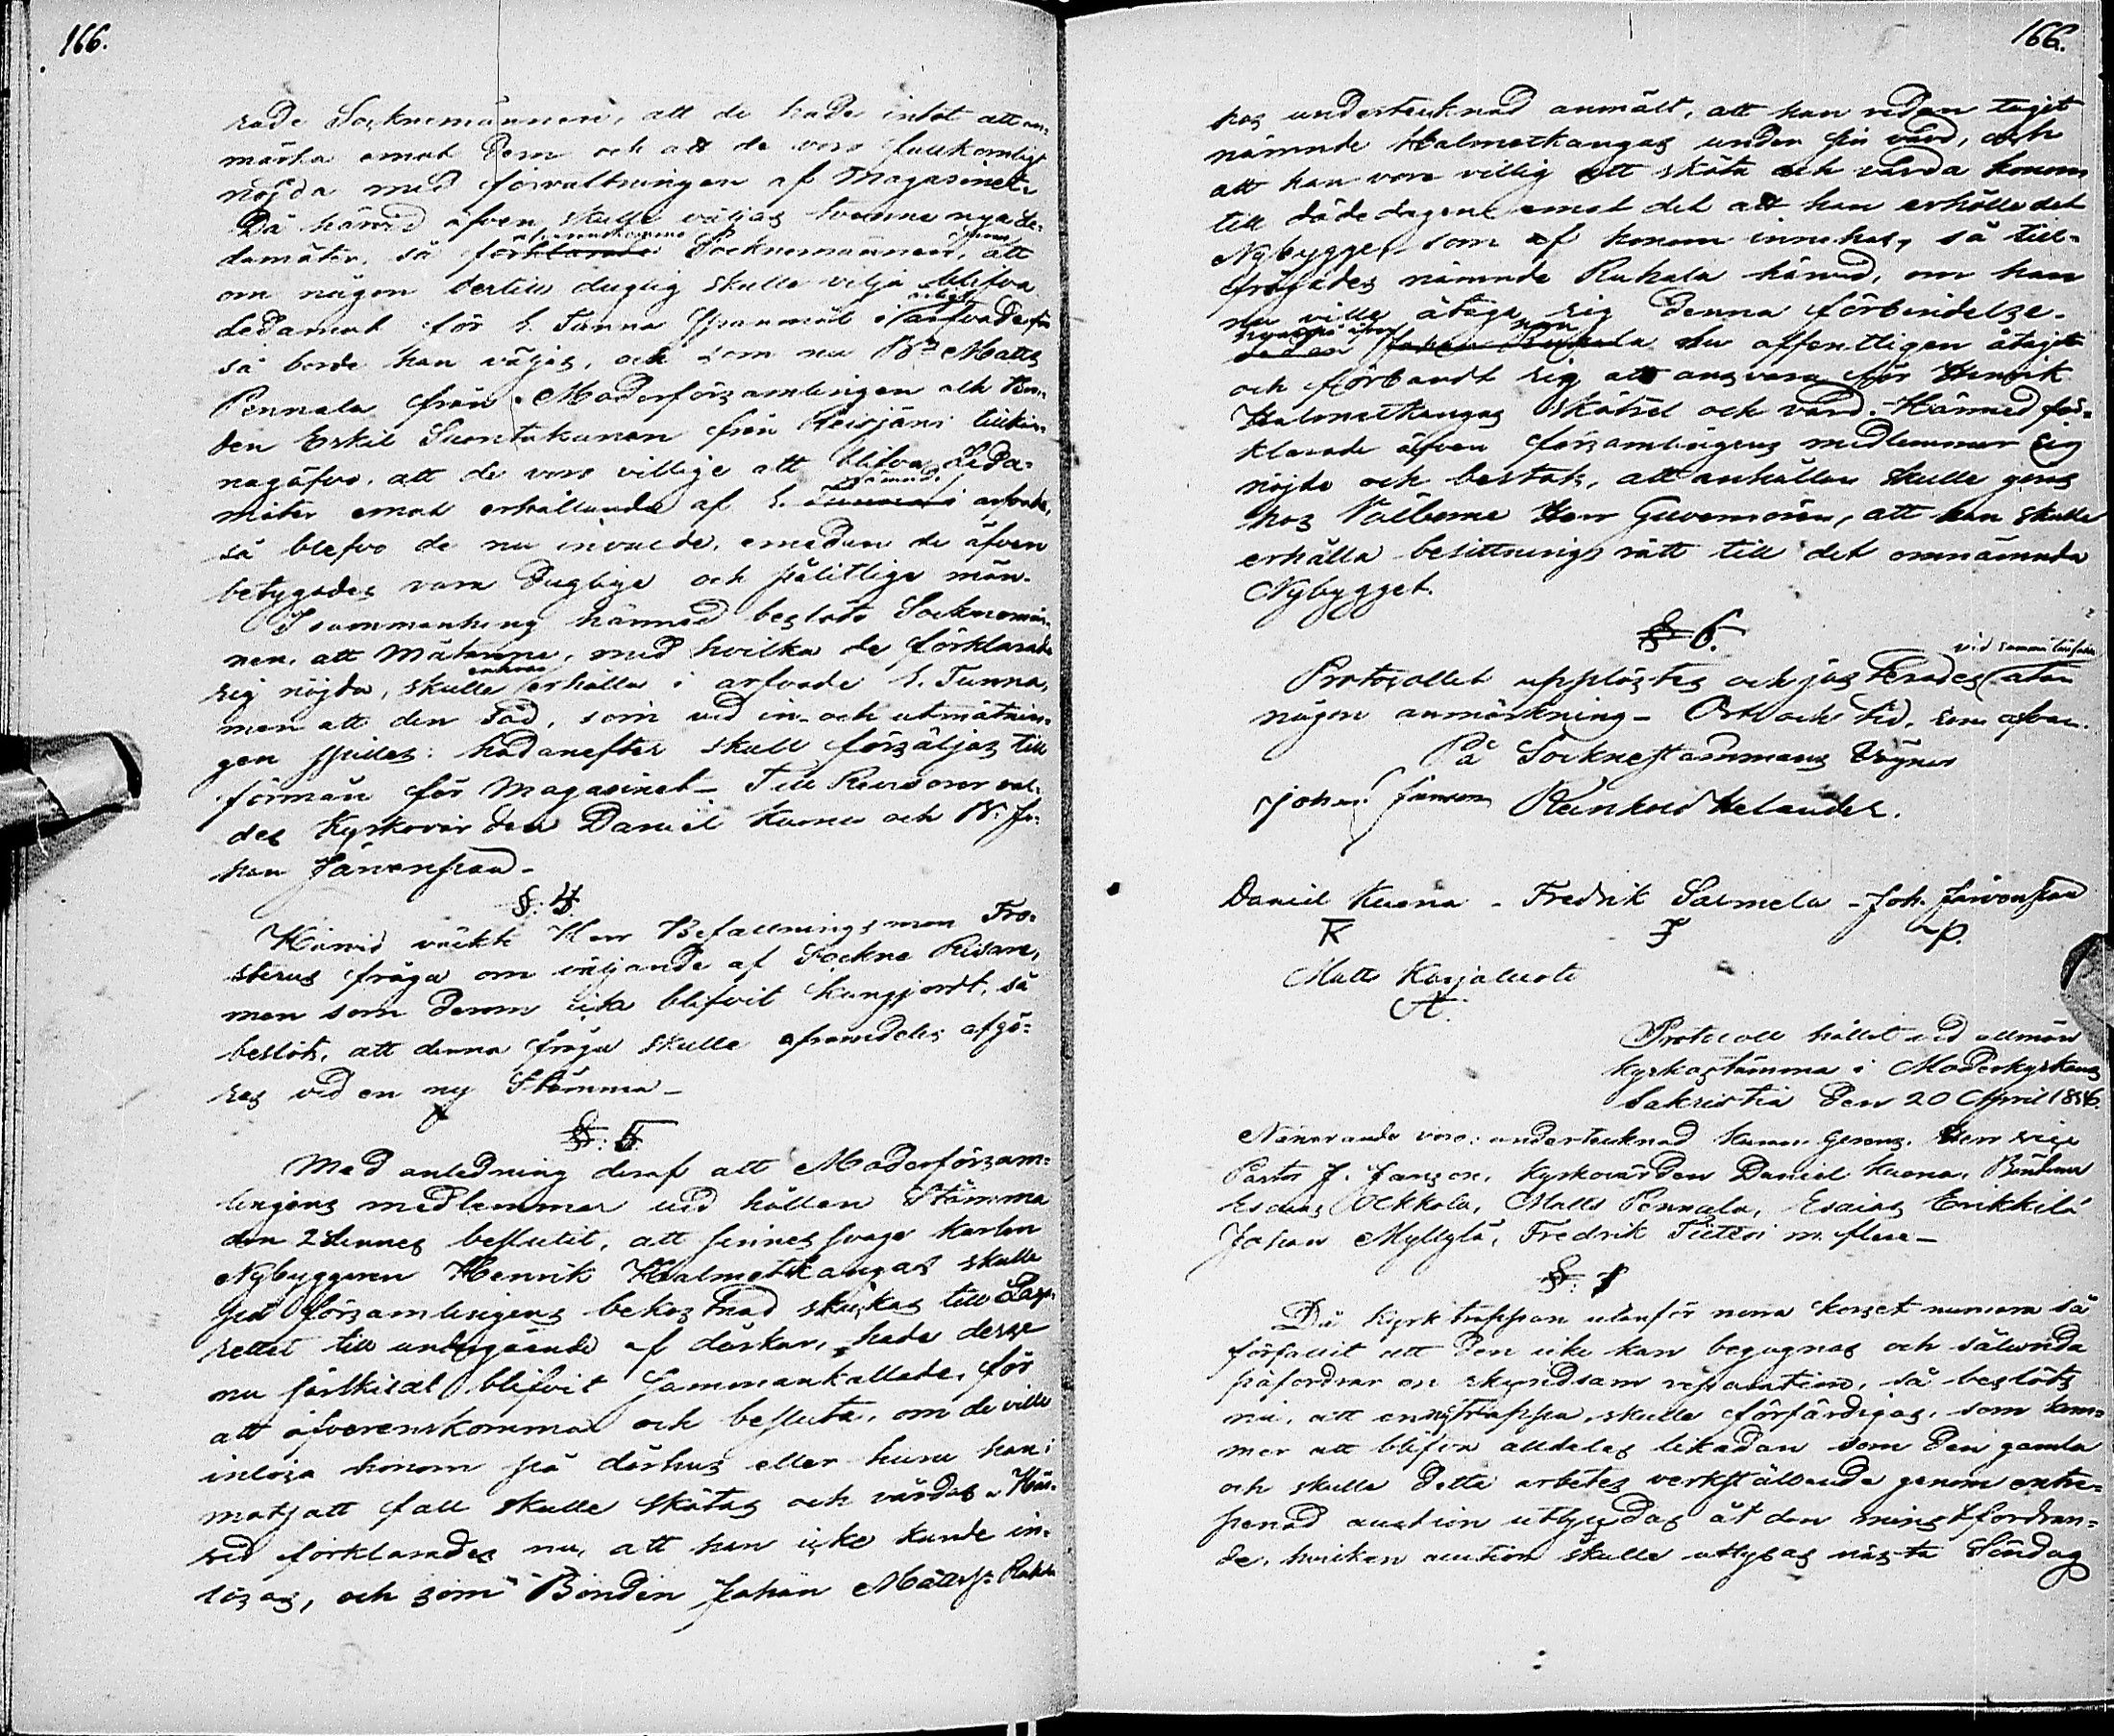 166.
rade Socknemännen, att de hade intet att an-
märka emot dem och att de voro fullkomligt
nöjda med förvaltningen af Magasinet.
Då härvid äfven skulle väljas tvenne nya Le-
damöter, så öfverenskommo Socknemännen, att
om någon dertill duglig skulle vilja blifva
ledamot för 1. Tunna Spanmål årligt i arfvode
så borde han väljas, och som nu Bn Matts
Pennala från Moderförsamlingen och Bon-
den Eskil Suontakanen från Reisjärvi tillkän-
nagåfvo, att de voro villige att blifva Leda-
möter emot erhållande af nämnde arfvode,
så blefvo de nu invalde, emedan de äfven
betygades vara duglige och pålitlige män.
I sammanhang härmed beslöto Socknemän-
nen, att Mätarene, med hvilka de förklarade
sig nöjda, skulle erhålla i arfvode 1. Tunna,
men att den säd, som vid in- och utmätnin-
gen spilles: hädanefter skall försäljas till
förmån för Magasinet - Till Revisorer val-
des Kyrkovärden Daniel Kuona och B. Jo-
han Järvenpää -
§. 4.
Härvid väckte Herr Befallningsman Fro-
sterus fråga om väljande af Sockne
men som derom icke blifvit kungjordt, så
beslöts, att denna fråga skulle framdeles afgö-
ras vid en ny Stämma -
§. 5.
Med anledning deraf att Moderförsam-
lingens medlemmar vid hållen Stämma
den 2 beslutit, att sinnessvage karlen
Nybyggaren Henrik Halmetkangas skulle
på församlingens bekostnad skickas till Laza-
rettet till undergående af dårkur, hade desse
nu särskildt blifvit sammankallade, för
att öfverenskomma och besluta, om de ville
inlösa honom på dårhus eller huru han i
motsatt fall skulle skötas och vårdas. Här-
vid förklarades nu, att han icke kunde in-
lösas, och som Bonden Johan Mattss:
166.
hos undertecknad anmält, att han redan tagit
nämnde Halmetkangas under sin vård, och
att han vore villig att sköta och vårda honom
till dödedagen emot det att han erhölle det
Nybygge, som af honom innehas, så till-
frågades nämnde Ruhala härvid, om han
nu ville åtaga sig denna förbindelse -
han nu offentligen åtagit
och förbandt sig att ansvara för Henrik
Halmetkangas skötsel och vård. - Härmed för-
klarade äfven församlingens medlemmar sig
nöjde och beslöts, att anhållan skulle göras
hos Välborne Herr Guvernören, att han skulle
erhålla besittningsrätt till det omnämnda
Nybygget.
§ 6.
vid samma tillfälle
Protocollet upplästes och justerades utan
någon anmärkning - Ort och tid, som ofvan.
På Socknestämmans Vägnar
Johan Janson Reinhold Helander.
Daniel Kuona - Fredrik Salmela - Joh. Järvenpää
K F P.
Matts Karjaluoto
Protocoll hållet vid allmän
Kyrkostämma i Moderkyrkans
Sakristia den 20 April 1856.
Närvarande voro: undertecknad Herr vice
Pastor J. Janson, Kyrkovärden Daniel Kuona, Bönderne
Esaias Okkola, Matts Pennala, Esaias Erikkilä
Johan Myllylä, Fredrik Tiitto m. flere -
§. 1
Då Kyrktrappan utanför norra korset numera så
förfallit att den icke kan begagnas och sålunda
påfordrar en skyndsam reparation, så beslöts
nu, att en ny trappa skulle förfärdigas, som kom-
mer att blifva alldeles likadan som den gamla
och skulle detta arbetes verkställande genom entre-
penad auction utbjudas åt den minstfordran-
de, hvilken auction skulle utlysas nästa Söndag